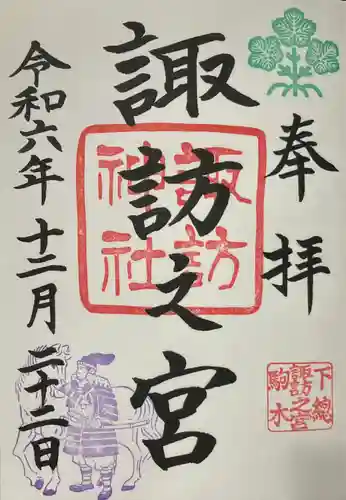 奉拝
諏訪之宮
諏訪
神社
令和六年十二月二十二日
下總
諏訪之宮
駒木